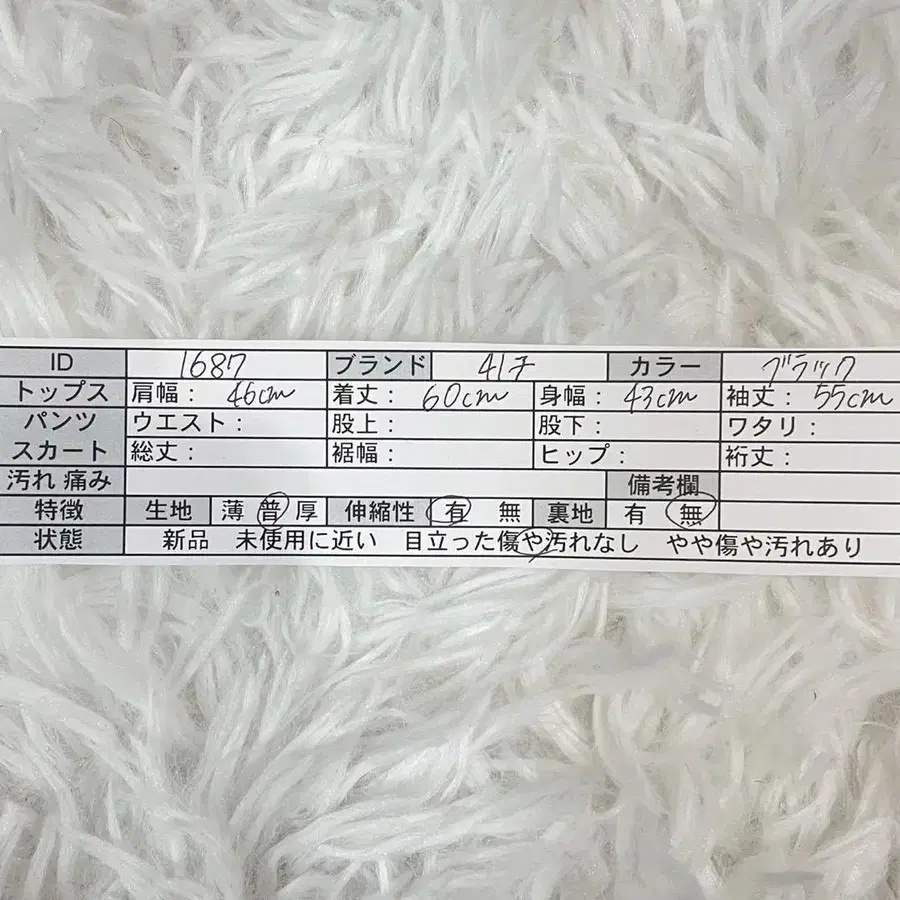 ID 1687 ブランド カラー ブラック
トップス 肩幅: 46cm 着丈: 60cm 身幅: 43cm 袖丈: 55cm
パンツ ウエスト: 股上: 股下: ワタリ:
スカート 総丈: 裾幅: ヒップ: 裄丈:
汚れ 痛み 備考欄
特徴 生地 薄 普 厚 伸縮性 有 無 裏地 有 無
状態 新品 未使用に近い 目立った傷や汚れなし やや傷や汚れあり